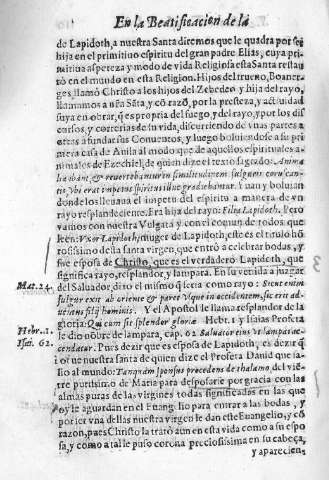 En la Beatificacion de la
de Lapidoth, a nuestra Santa diremos que le quadra por ser
hija en el primitiuo espiritu del gran padre Elias, cuya pri-
mitiua aspereza y modo de vida Religiosa esta Santa restau
rò en el mundo en esta Religion. Hijos del trueno, Boaner-
ges, llamò Christo a los hijos del Zebedeo y hija del rayo,
llamamos a nřa Sãta, y cõ razõ, por la presteza, y actiuidad
suya en obrar, q̃ es propria del fuego, y del rayo, y por los dis
cursos, y correrias de su vida, discurriendo de vnas partes a
otras a fundar sus Conuentos, y luego boluiendose a su pri
mera casa de Auila al modo que de aquellos espirituales a-
nimales de Ezechiel, de quien dize el texto sagrado: Anima
lia ibant, & reuertebantur in similitudinem fulguris corus can-
tis, vbi erat impetus spiritus illuc gradiebantur. Yuan y boluian
donde los lleuaua el impetu del espiritu a manera de vn
rayo resplandeciente. Era hija del rayo: Filia Lapidoth. Pero
vamos con nuestra Vulgata y con el comun de todos que
leen: Vxor Lapidoth; muger de Lapidoth, este es el titulo hõ
rosissimo desta santa virgen, que entrò a celebrar bodas, y
fue esposa de Christo, que es el verdadero Lapidoth, que
significa rayo, resplandor, y lampara. En su venida a juzgar
Mat. 24. del Saluador, dixo el mismo q̃ seria como rayo: Sicut enim
fulgur exit ab oriente & paret vsque in occidentem, sic erit ad-
uentus filij hominis. Y el Apostol le llama resplandor de la
Hebr. 1. gloria: Qui cum sit splendor gloriæ Hebr. 1 y Isaias Profeta
Isai. 62. le dio nõbre de lampara, cap. 62. Saluator eius vt lampas ac-
cendatur. Pues dezir que es esposa de Lapidoth, es dezir q̃
lo es nuestra santa de quien dize el Profeta Dauid que sa-
lio al mundo: Tanquam sponsus procedens de thalamo, del viẽ-
tre purissimo de Maria para desposarse por gracia con las
almas puras de las virgines todas significadas en las que
oy le aguardan en el Euangelio para entrar a las bodas, y
por ser vna dellas nuestra virgen le dan este Euangelio, y cõ
razon, pues Christo la tratò aun en esta vida como a su espo
sa, y como a tal le puso corona preciosissima en su cabeça,
y aparecien-